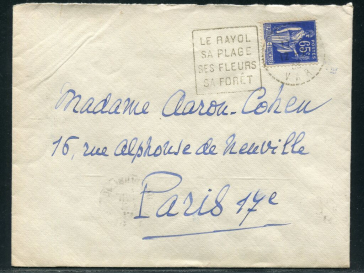 LE RAYOL
SA PLAGE
SES FLEURS
SA FORÊT
Madame Aaron-Cohen
15, rue Alphonse de Neuville
Paris 17e